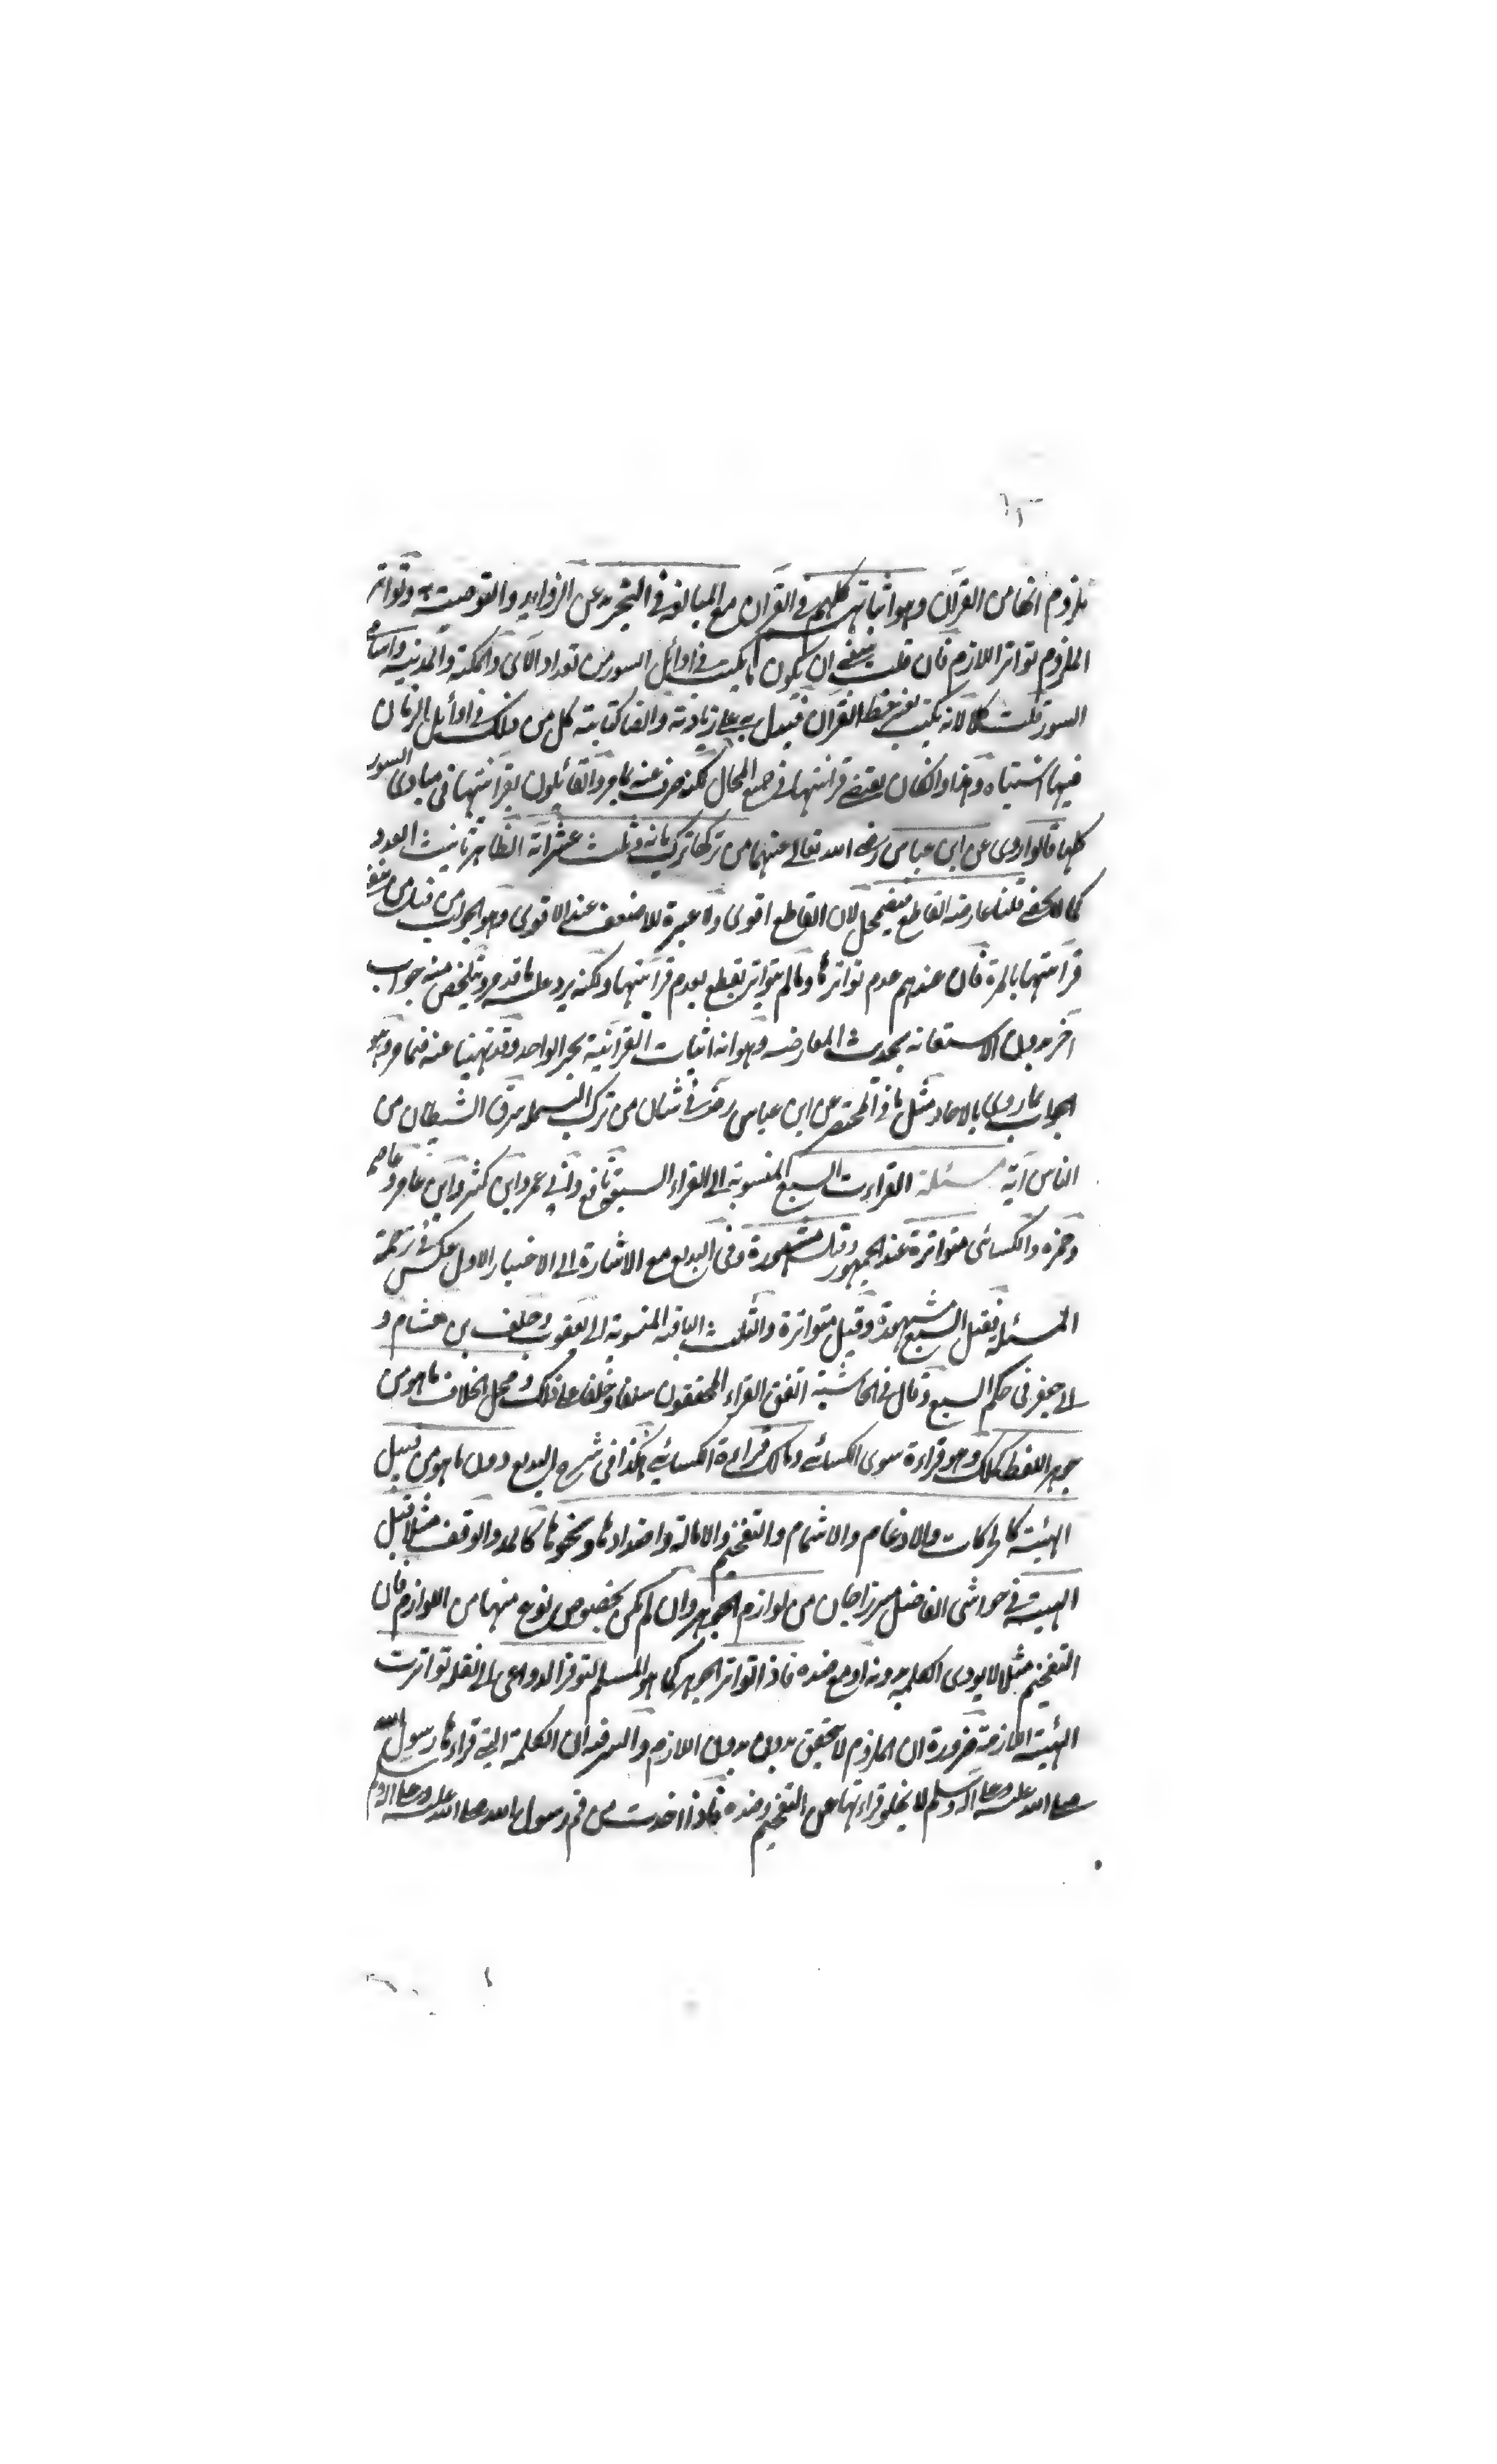 ملزوم انها من القرآن وهو اثباتهم كلهم في القرآن مع المبالغة في التجريد عن الزوايد والتوصية به وتواتر
الملزوم تواتر اللازم فان قلت ينبغي ان يكون ما يكتب في اوائل السور من تعداد الآي والمكية والمدنية واسامي
السور قلت كلا لانه يكتب بغير خط القرآن فيدل به على زيادته وايضا كتابته كل من ذلك في اوائل الزمان
فيها اشتباه وهذا وان كان يقتضي قرآنيتها في جميع المحال لكنه صرف عنه ما مر والقائلون بقرآنيتها في مبادي السور
كلها قالوا روى عن ابن عباس رضي الله تعالى عنهما من تركها ترك مائة وثلث عشر آية الظاهر تانيث العدد
كما لا يخفى قلنا عارضه القاطع فيضمحل لان القاطع اقوى ولا عبرة للاضعف عند الاقوى وهو الجواب من قبل من ينفي
قرآنيتها بالمرة فان عندهم عدم تواترها وما لم يتواتر يقطع بعدم قرآنيتها ولكنه يرد عليه ما قدمر ويتلخص منه جواب
آخر بدون الاستعانة بحديث المعارضة وهو انه اثبات القرآنية بخبر الواحد وقد نهينا عنه فيما مر وهو
الجواب عما روي بالاحاد مثل ما في المختصر عن ابن عباس رضى في شان من ترك البسملة سرق الشيطان من
الناس آية مسئلة القراءت السبع المنسوبة الى القراء السبعة نافع وابي عمرو ابن كثير وابن عامر وعاصم
وحمزه والكسائي متواترة عند الجمهور وقيل مشهورة وفي البديع مع الاشارة الى الاختيار الاول عكس في ترجمة
المسئلة فقيل السبع مشهورة وقيل متواترة والثلث الباقية المنسوبة الى يعقوب وخلف بن هشام و
ابي جعفر في حكم السبع وقال في الحاشية اتفق القراء المحققون سلفا وخلفا على ذلك ومحل الخلاف ما هو من
جوهر اللفظ كملك وهو قراءة سوى الكسائي ومالك قراءة الكسائي هكذا في شرح البديع دون ما هو من قبيل
الهيئة كالحركات والادغام والاشمام والتفخيم والامالة واضدادها ونحوها كالمد والوقف مثلا قيل
الهيئة في حواشي الفاضل ميرزاجان من لوازم الجوهر وان لم يكن بخصوص نوع منها من اللوازم فان
التفخيم مثلا لا يودى الكلمة بدونه او مع ضده فاذا تواتر الجوهر كما هو المسلم لتوفر الدواعي الى نقله تواترت
الهيئة اللازمة ضرورة ان الملزوم لا يتحقق بدون بدون اللازم والسر فيه ان الكلمة التي قراءها رسول الله
صلى الله عليه وعلى آله وسلم لا يخلو قراءتها عن التفخيم وضده فاذا اخذت من فم رسول الله صلى الله عليه وعلى اله وسلم